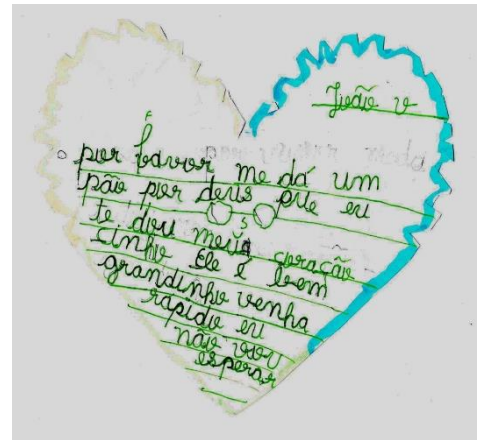 João v
por favor me dá um
pão por deus que eu
te dou meu coração
cinho Ele é bem
grandinho venha
rapido eu
não vou
esperar